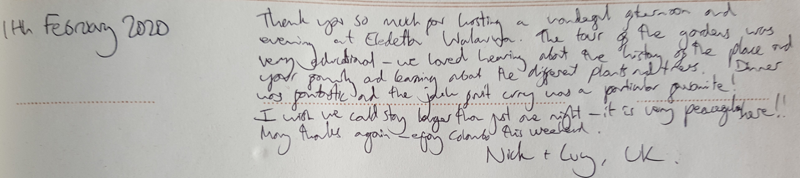 11th February 2020
Thank you so much for hosting a wonderful afternoon and
evening at Ekedetta Walauwa. The tour of the gardens was
very educational – we loved hearing about the history of the place and
your family and learning about the different plants and trees. Dinner
was fantastic and the jack fruit curry was a particular favourite!
I wish we could stay longer than just one night – it is very peaceful here!!
Many thanks again – enjoy Colombo this weekend.
Nick + Lucy, UK.